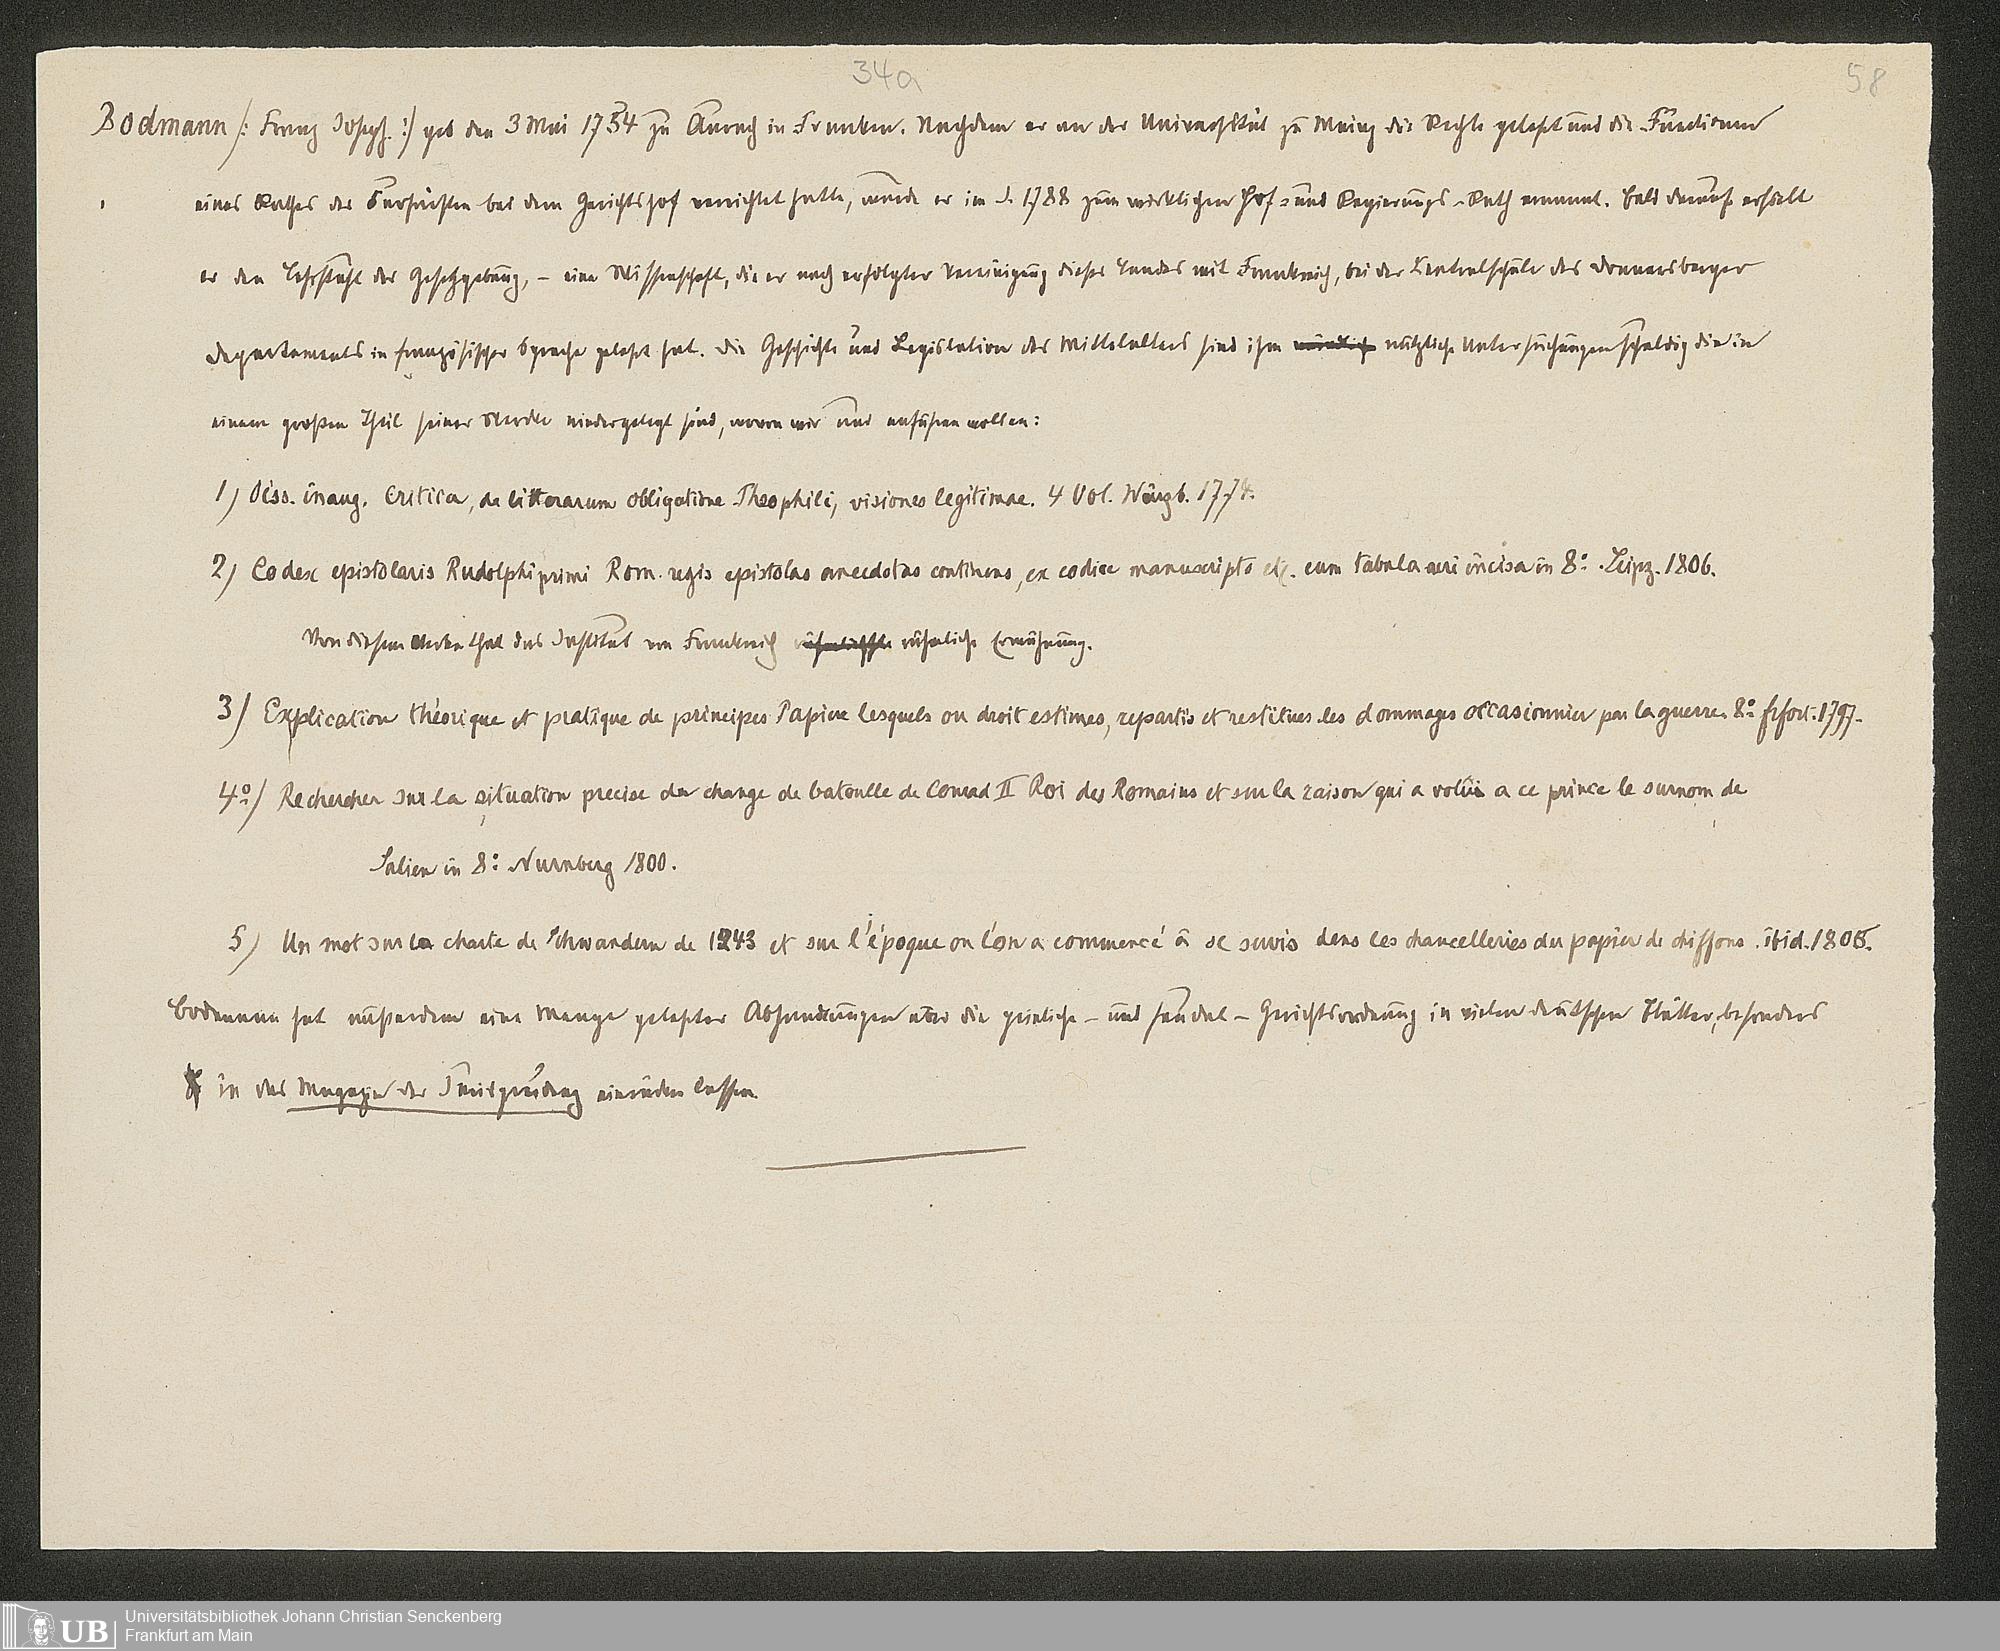 34a
58
Bodmann /: Franz Joseph :/ geb den 3 Mai 1754 zu Aurach in Franken. Nachdem er an der Universität zu Mainz die Rechte gelehrt und die Functionen
eines Rathes des Curfürsten bei dem Gerichtshof verrichtet hatte, wurde er im J. 1788 zum wirklichen Hof- und Regierungs-Rath ernannt. Bald darauf erhielt
er den Lehrstuhl der Gesetzgebung, – eine Wissenschaft, die er nach erfolgter Vereinigung dieses Landes mit Frankreich, bei der Centralschule des Donnersberger
Departements in französischer Sprache gelehrt hat. Die Geschichte und Legislation des Mittelalters sind ihm nützliche Untersuchungen schuldig die in
einem großen Theil seiner Werke niedergelegt sind, wovon wir nur anführen wollen:
1) Diss. inaug. Critica, de litterarum obligatione Theophili, visiones legitimae. 4 Vol. Würzb. 1774.
2) Codex epistolaris Rudolphi primi Rom. regis epistolas anecdotas continens, ex codice manuscripto etc. cum tabula aeri incisa in 8º. Leipz. 1806.
Von diesem Werke that das Institut von Frankreich rühmliche Erwähnung.
3) Explication théorique et pratique de principes d'apiere lesquels on droit estimes, repartis et restitues les dommages occasionnier par la guerre. 8º. frfort. 1797.
4º) Rechercher sur la situation precise du change de batoulle de Conrad II Roi des Romains et sur la raison qui a a ce prince le surnom de
Salien in 8º. Nurnberg 1800.
5) Un mot sur la charte de Schwanden de 1243 et sur l'époque on l'on a commencé â se suvis dens les chancelleries du papier de chiffons. ibid. 1805.
Bodmann hat außerdem eine Menge gelehrter Abhandlungen über die peinliche- und Handel-Gerichtsordnung in vielen deutschen Blätter, besonders
in das Magazin der einrücken lassen.
Universitätsbibliothek Johann Christian Senckenberg
Frankfurt am Main
UB